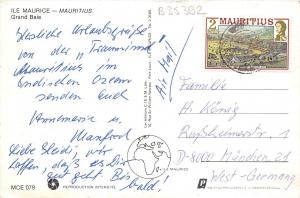 ILE MAURICE - MAURITIUS
Grand Baie
B35392
2 MAURITIUS
Herzliche Urlaubsgrüße
von der "Trauminsel
Mauritius im
Indischen Ozean
senden Euch
Annemarie u.
Manfred
Liebe Heidi, wir
hoffen, daß es Dir
gut geht. Bis
bald!
Air Mail
Familie
H. König
1
D-8000 München 21
West-Germany
ILE MAURICE
MOE 079
REPRODUCTION INTERDITE